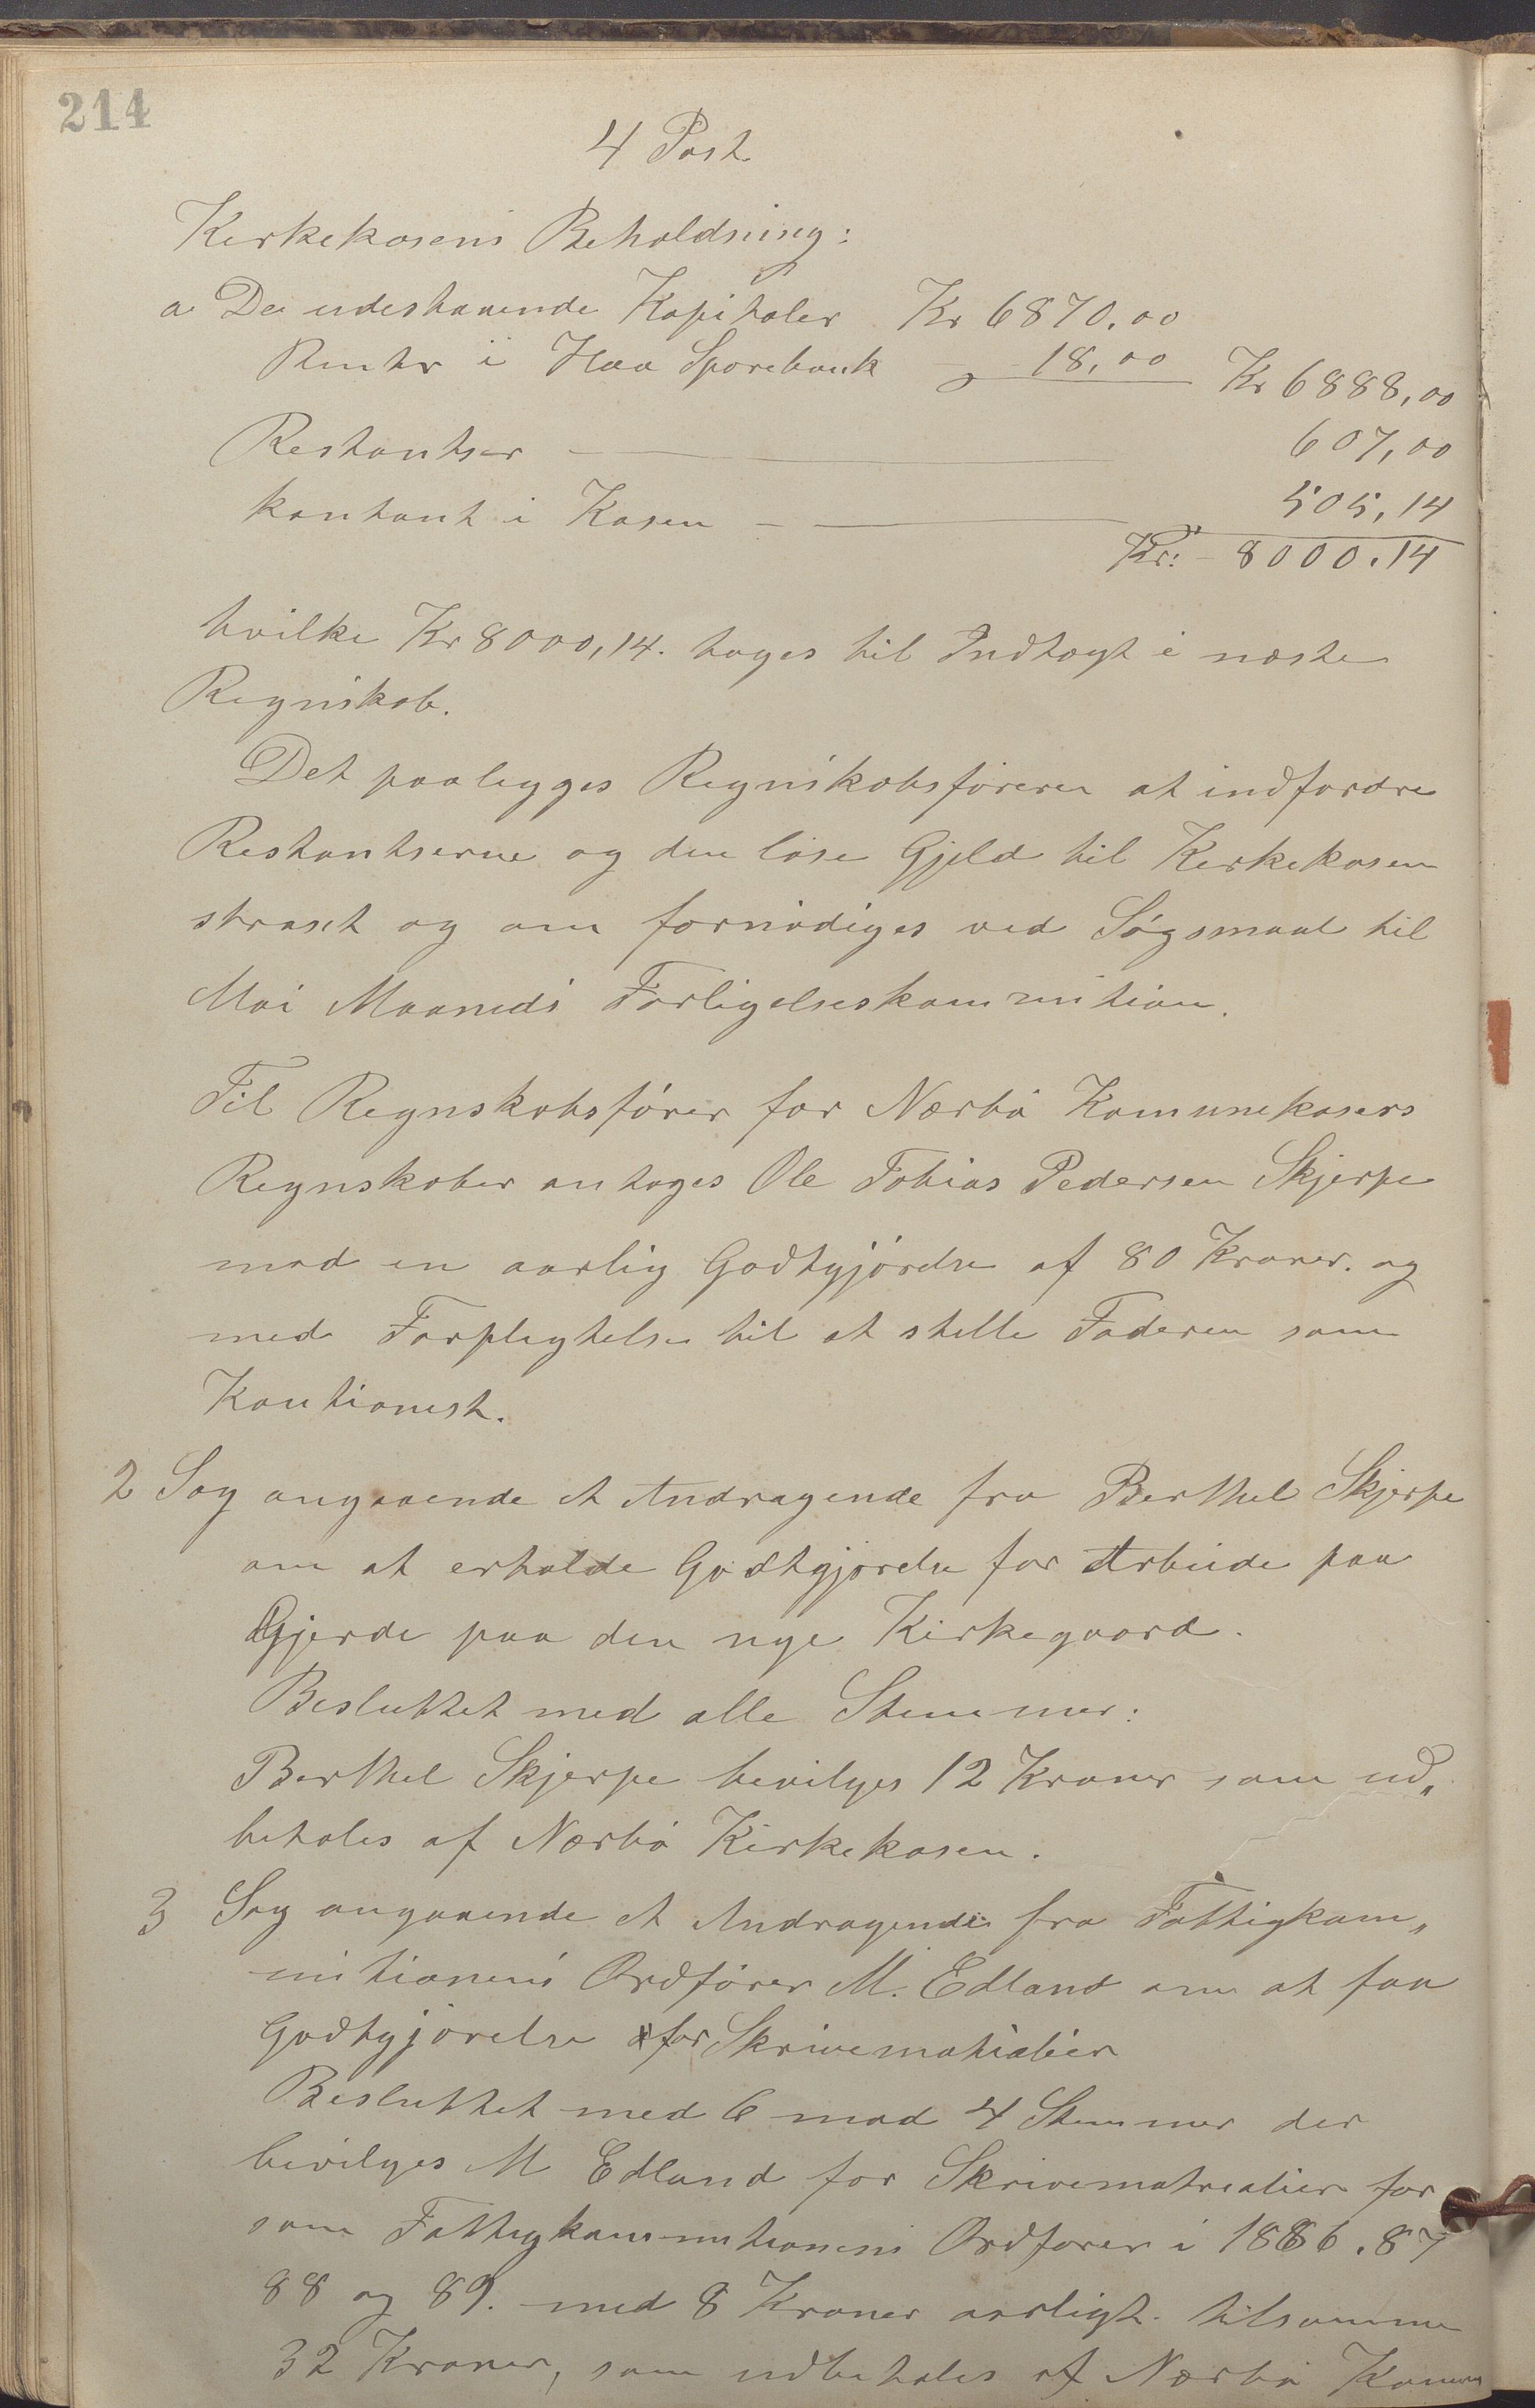 214
4 Post
Kirkekasens Beholdning:
a De udestaaende Kapitaler Kr 6870,00
Renter i Haa Sparebank - 18,00 Kr 6888,00
Restantser 607,00
kontant i Kasen - 505,14
Kr: - 8000.14
hvilke Kr 8000,14. tages til Indtægt i næste
Regnskab.
Det paalegges Regnskabsføreren at indfordre
Restantserne og den løse Gjeld til Kirkekasen
straxt og om fornødiges ved Søgsmaal til
Mai Maaneds Forligelseskommition.
Til Regnskabsfører for Nærbø Komunekasers
Regnskaber antages Ole Tobias Pedersen Skjerpe
mod en aarlig Godtgjørelse af 80 Kroner. og
med Forpligtelse til at stille Faderen som
Kautionist.
2 Sag angaaende et Andragende fra Berthel Skjerpe
om at erholde Godtgjørelse for Arbeide paa
Gjerde paa den nye Kirkegaard.
Besluttet med alle Stemmer:
Berthel Skjerpe bevilges 12 Kroner som ud„
betales af Nærbø Kirkekasen.
3 Sag angaaende et Andragende fra Fattigkom„
mitionens Ordfører M. Edland om at faa
Godtgjørelse for Skrivematialier
Besluttet med 6 mod 4 Stemmer der
bevilges M Edland for Skrivematrealier for
som Fattigkommitionens Ordfører i 1886. 87
88 og 89. med 8 Kroner aarligt. tilsamme
32 Kroner, som udbetales af Nærbø Komune